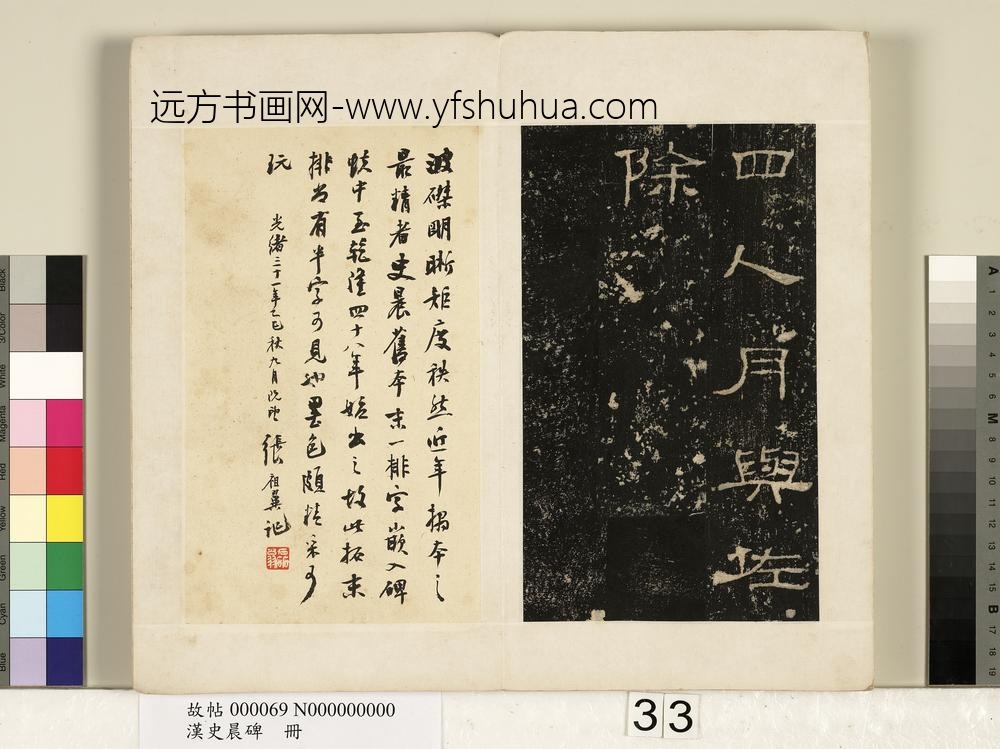 远方书画网-www.yfshuhua.com
四人月與佐
除
波磔明晰矩度秩然近年搨本之
最精者史晨舊本末一排字嵌入碑
趺中至乾隆四十八年始出之故此拓末
排尚有半字可見而墨色頗精采可
玩
光緒三十一年乙巳秋九月既望張祖翼記
故帖 000069 N000000000
漢史晨碑 冊
33
Black
3/Color
White
Magenta
Red
Yellow
Green
Cyan
Blue
A
1
2
3
4
5
6
M
8
9
10
11
12
13
14
15
B
17
18
19